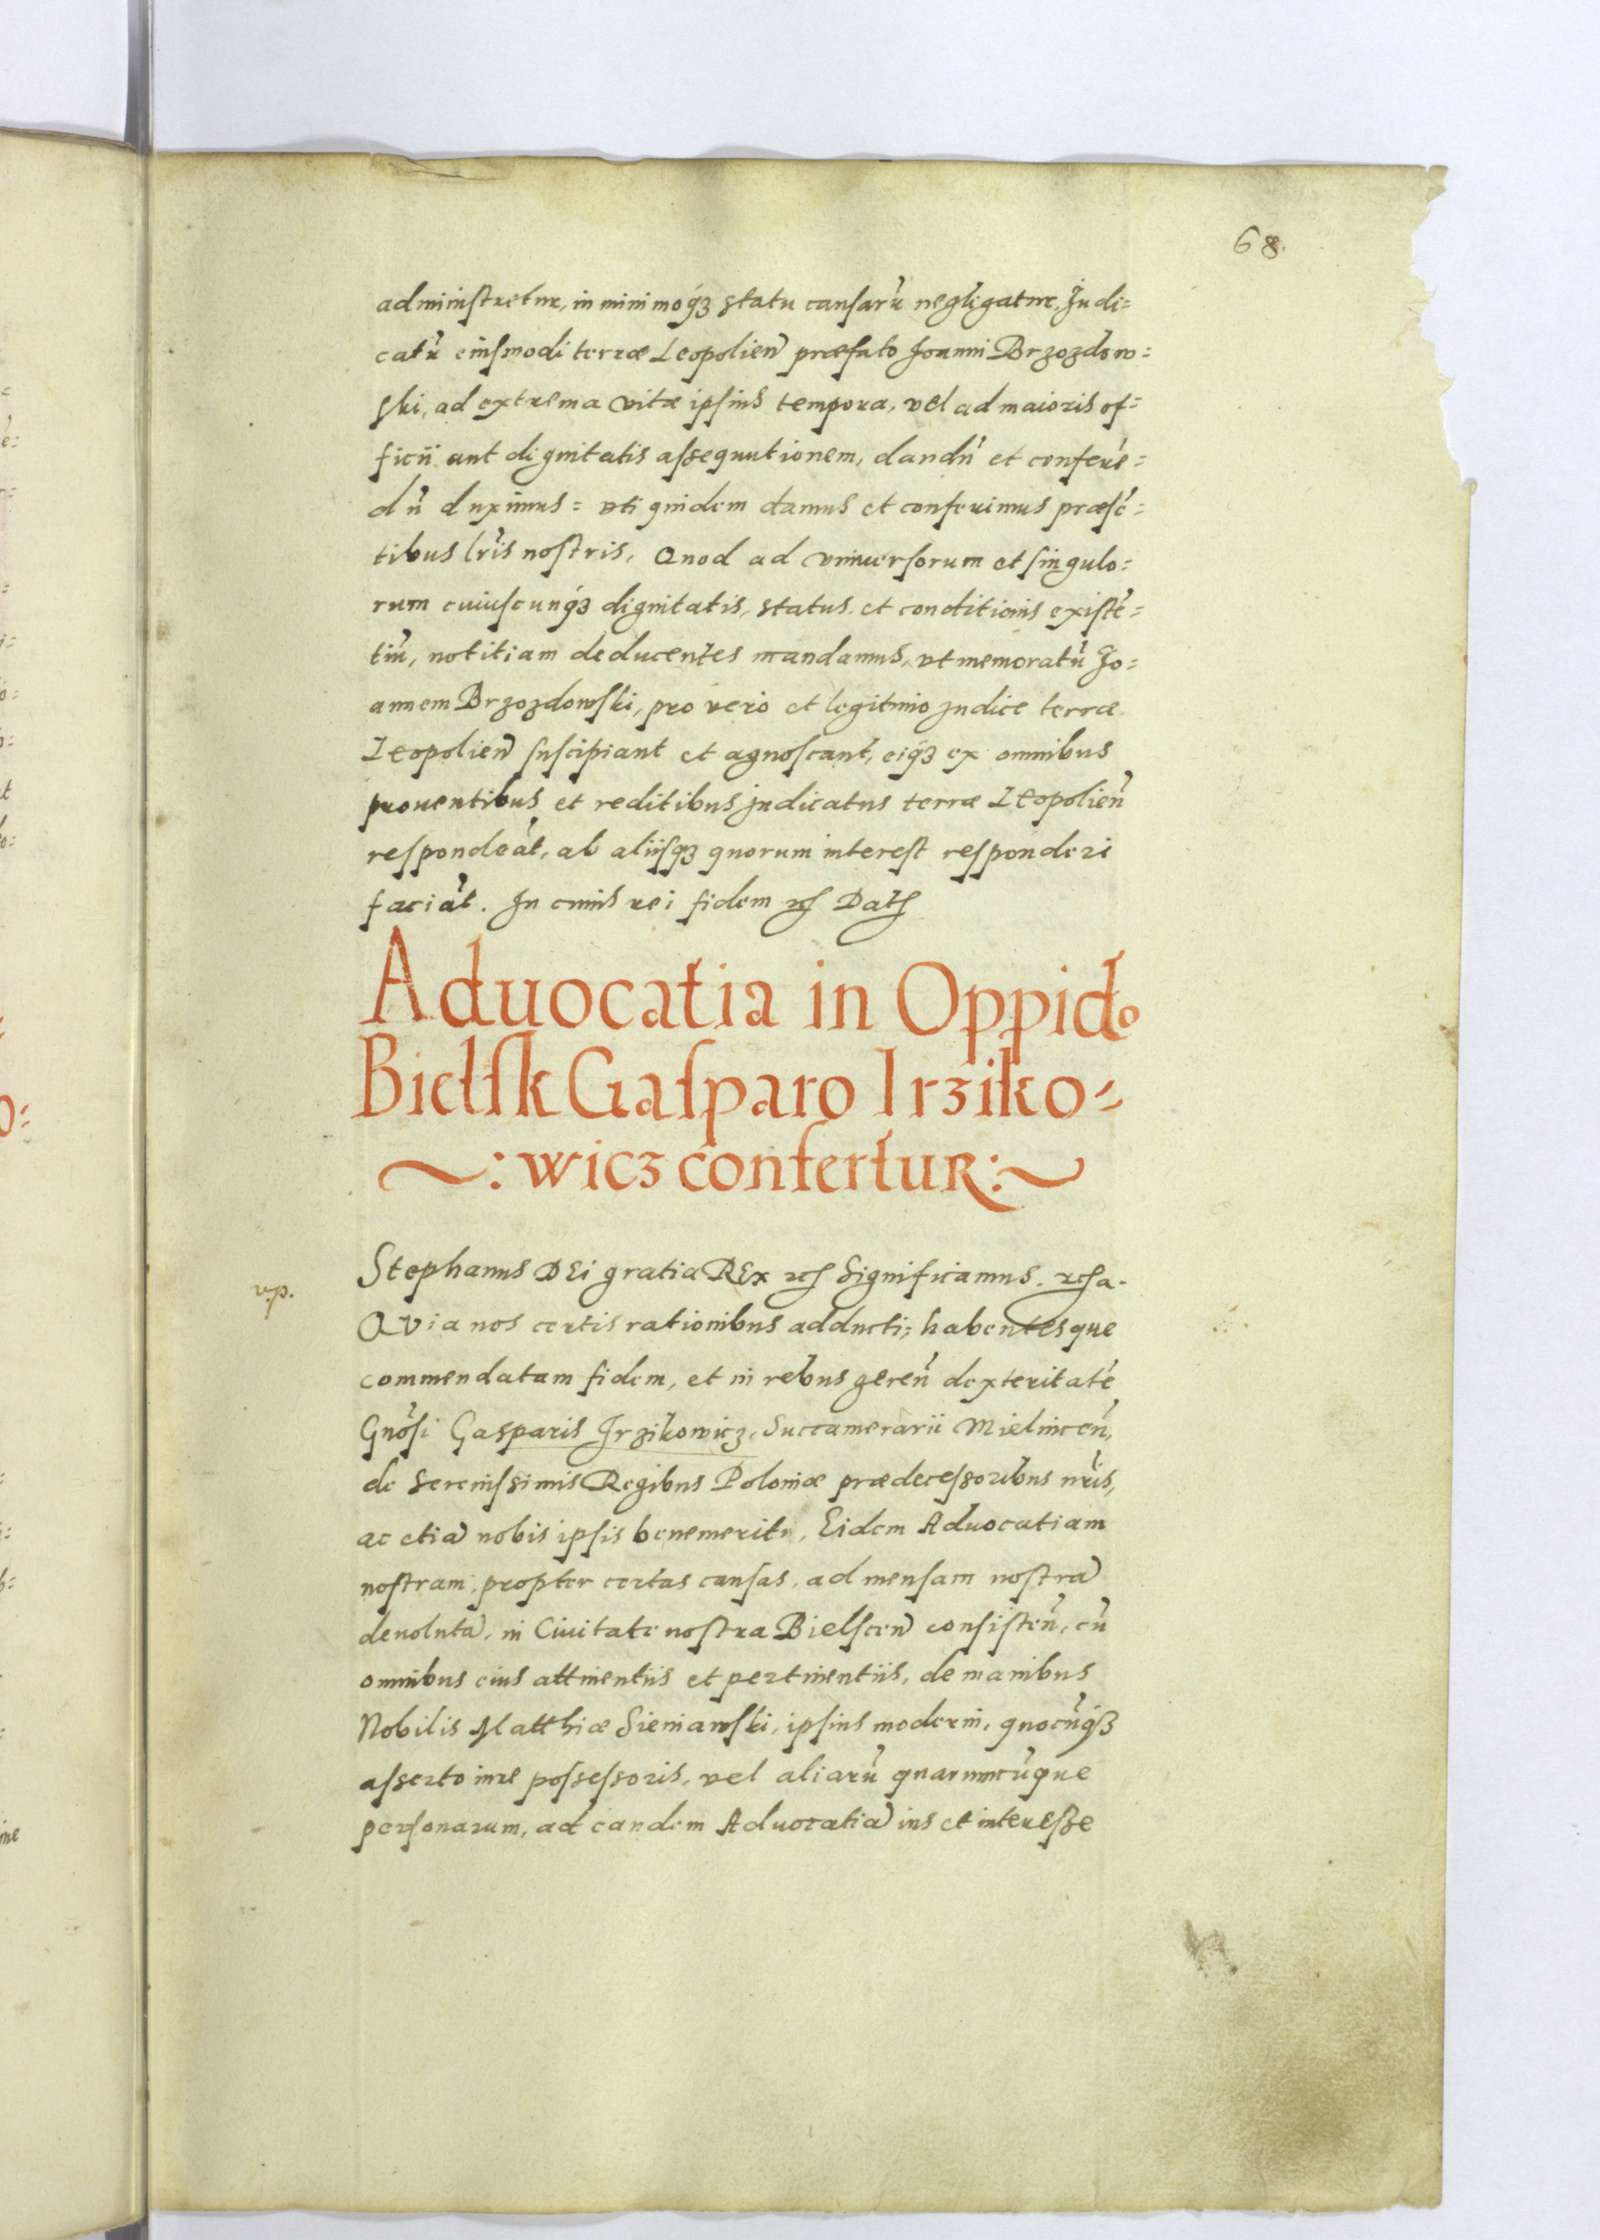 68.
administretur, in minimoq́ꝫ statu causarũ negligatur, Judi=
catũ eiusmodi terræ Leopolien̄ præfato Joanni Brzozdow=
ski, ad extrema vitæ ipsius tempora, vel ad maioris of=
ficii aut dignitatis assequutionem, dandũ et conferẽ=
dũ duximus = uti quidem damus et conferimus præsẽ=
tibus lr̃is nostris. Quod ad vniuersorum et singulo=
rum cuiuscunq́ꝫ dignitatis, status, et conditionis existẽ=
tiũ, notitiam deducentes mandamus, vt memoratũ Jo=
annem Brzozdowski, pro vero et legitimo judice terræ
Leopolien̄ suscipiant et agnoscant, eiq́ꝫ ex omnibus
prouentibus et reditibus judicatus terræ Leopolien̄
respondeãt, ab aliisq́ꝫ quorum interest responderi
faciãt. In cuius rei fidem etc Datt
Aduocatia in Oppido
Bielsk Gasparo Irziko=
~: wicz confertur :~
v.p.
Stephanus DEi gratia REx etc Significamus. etc a.
QVia nos certis rationibus adducti; habentesque
commendatam fidem, et in rebus geren̄ dexteritatẽ
Gnõsi Gasparis Jrzikowicz, Succamerarii Mielnicen̄,
de Serenissimis Regibus Poloniæ prædecessoribus nr̃is,
ac etiã nobis ipsis benemeriti, Eidem Aduocatiam
nostram, propter certas causas, ad mensam nostrã
deuolutã, in Ciuitate nostra Bielscen̄ consisten̄, cũ
omnibus eius attinentiis et pertinentiis, de manibus
Nobilis Matthiæ Sieniawski, ipsius moderni, quocũq́ꝫ
asserto iure possessoris, vel aliarũ quarumcũque
personarum, ad eandem Aduocatiã ius et interesse